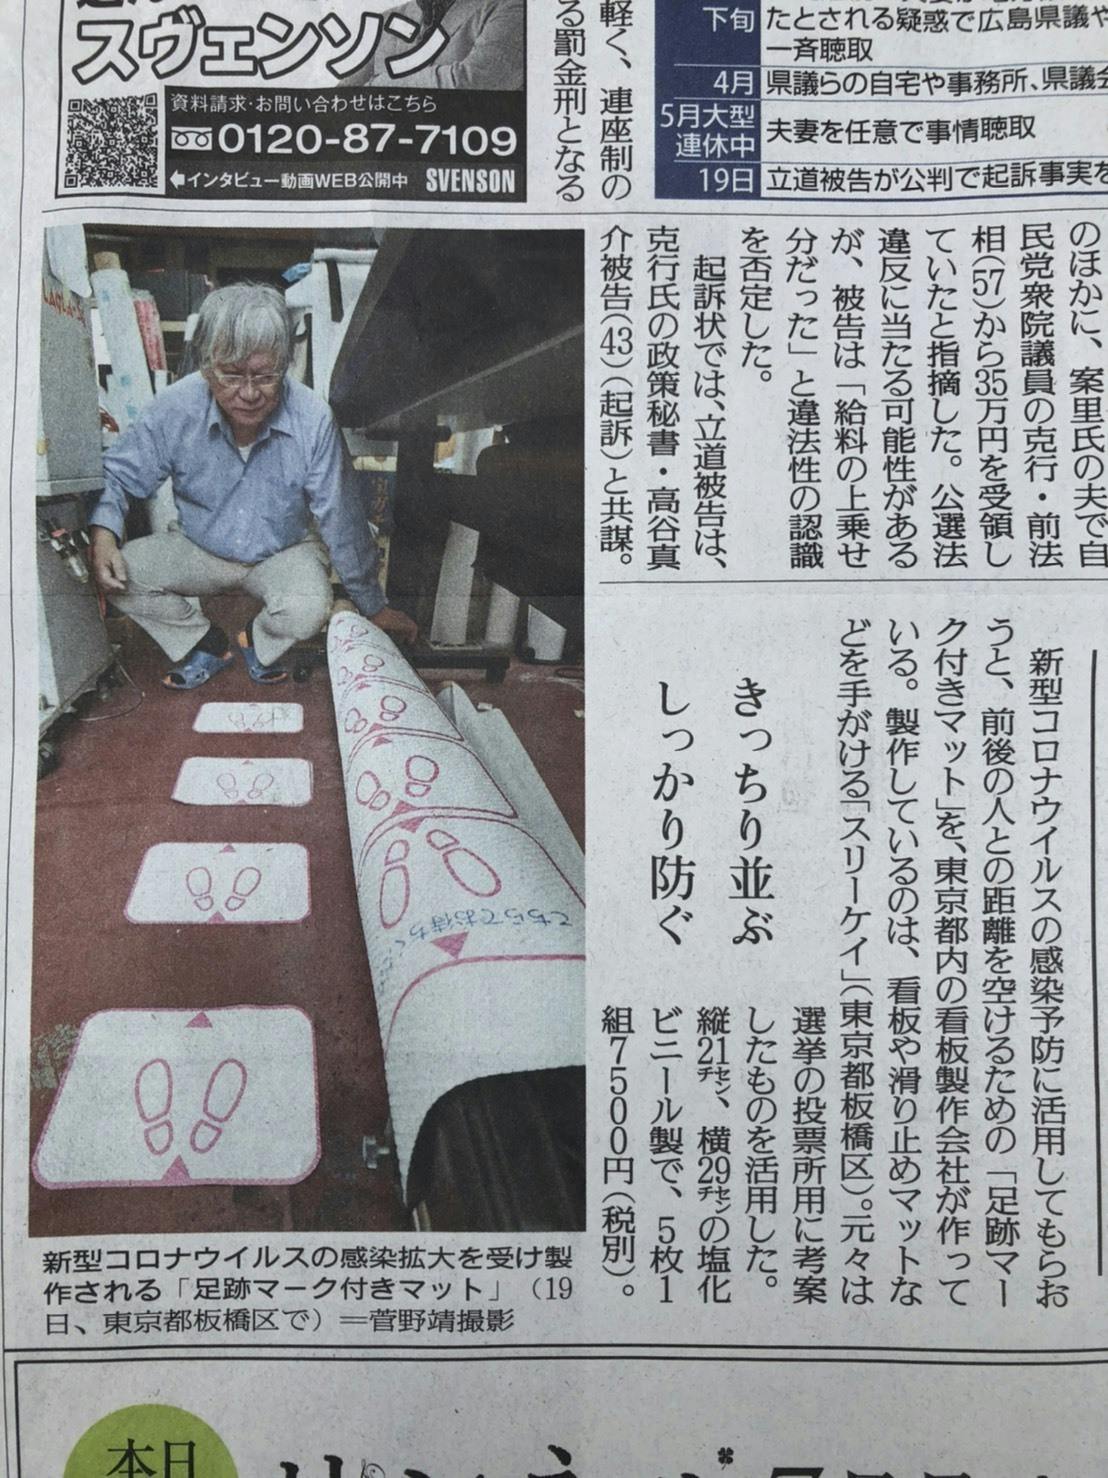 スヴェンソン
資料請求・お問い合わせはこちら
0120-87-7109
インタビュー動画WEB公開中 SVENSON
軽く、連座制の
る罰金刑となる
下旬
たとされる疑惑で広島県議や
一斉聴取
4月
県議らの自宅や事務所、県議会
5月大型
連休中
夫妻を任意で事情聴取
19日
立道被告が公判で起訴事実を
のほかに、案里氏の夫で自
民党衆院議員の克行・前法
相(57)から35万円を受領し
ていたと指摘した。公選法
違反に当たる可能性がある
が、被告は「給料の上乗せ
分だった」と違法性の認識
を否定した。
起訴状では、立道被告は、
克行氏の政策秘書・高谷真
介被告(43)(起訴)と共謀。
きっちり並ぶ
しっかり防ぐ
新型コロナウイルスの感染予防に活用してもらお
うと、前後の人との距離を空けるための「足跡マー
ク付きマット」を、東京都内の看板製作会社が作って
いる。製作しているのは、看板や滑り止めマットな
どを手がける「スリーケイ」(東京都板橋区)。元々は
選挙の投票所用に考案
したものを活用した。
縦21㌢、横29㌢の塩化
ビニール製で、5枚1
組7500円(税別)。
こちらでお待ちく
新型コロナウイルスの感染拡大を受け製
作される「足跡マーク付きマット」(19
日、東京都板橋区で)＝菅野靖撮影
本日